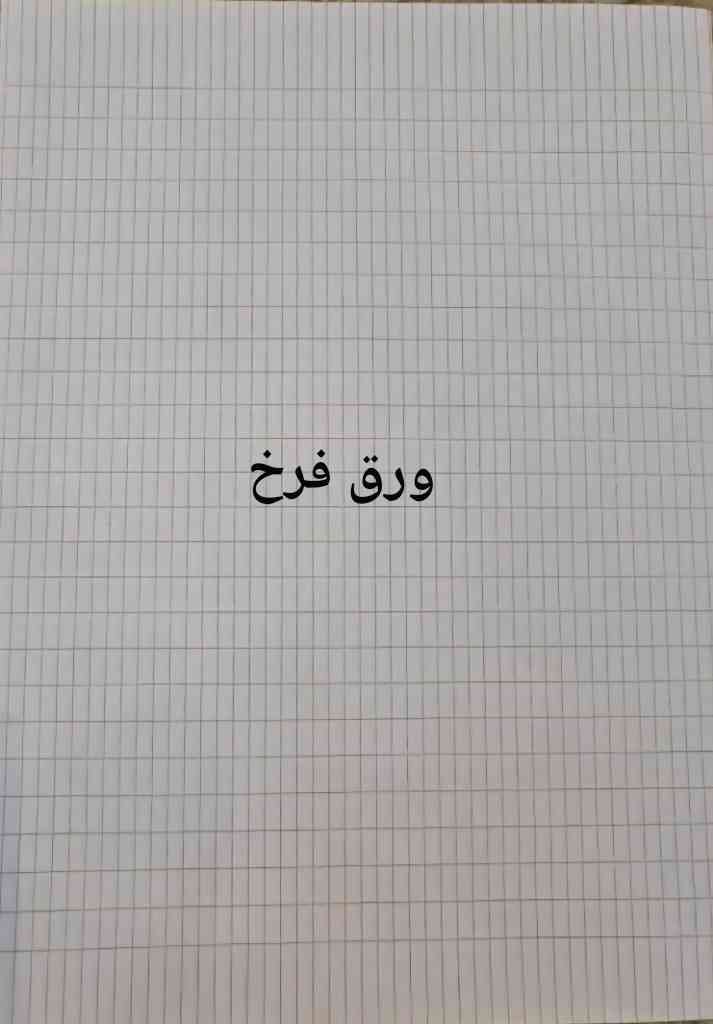 ورق فرخ